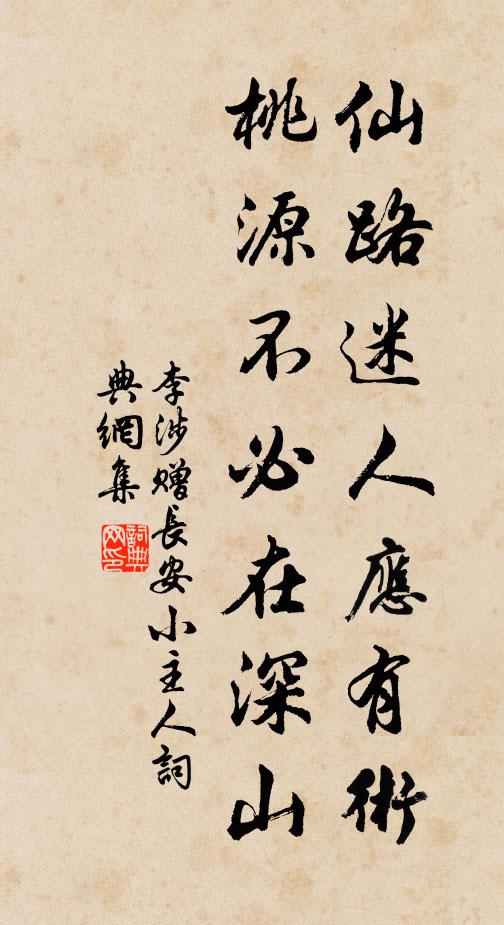 仙路迷人應有術
桃源不必在深山
李涉贈長安小主人詞
典網集
詞典
网印